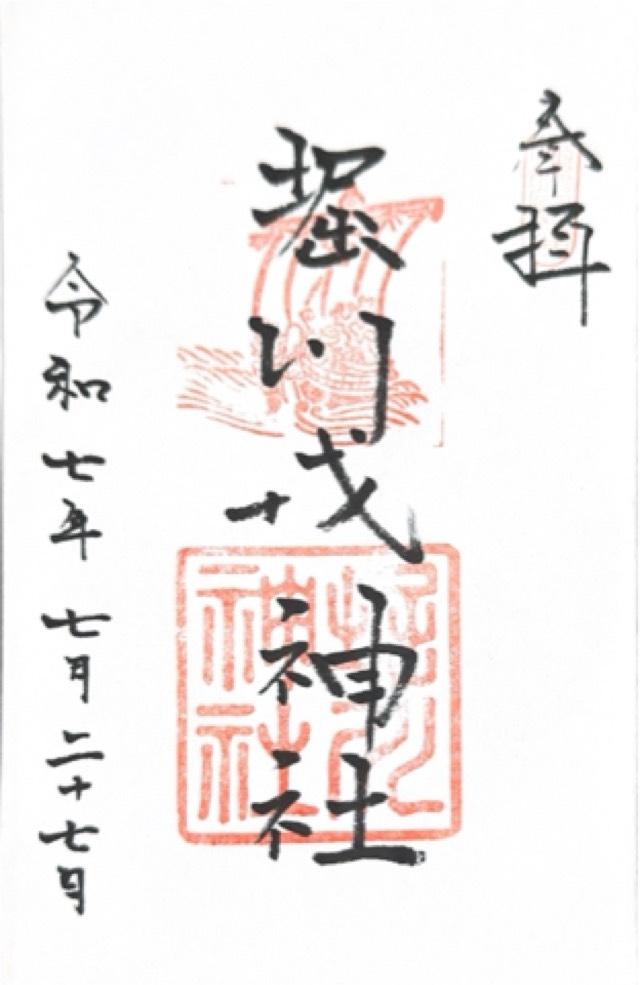 奉拝
堀川戎神社
令和七年七月二十七日